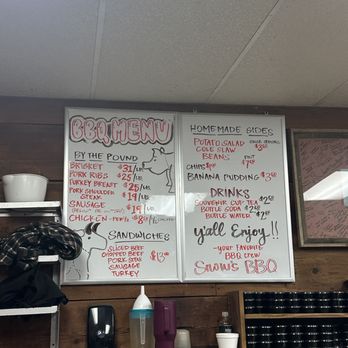 BBQ MENU
BY THE POUND
BRISKET $31/LB.
PORK RIBS $25/LB.
TURKEY BREAST $25/LB.
PORK SHOULDER STEAK $19/LB.
SAUSAGE $19/LB.
CHICKEN
SANDWICHES
SLICED BEEF
CHOPPED BEEF
PORK
SAUSAGE
TURKEY
HOMEMADE SIDES
POTATO SALAD
COLE SLAW
BEANS
PINT
CHIPS
BANANA PUDDING
DRINKS
SOUVENIR CUP TEA
BOTTLE SODA
BOTTLE WATER
y'all Enjoy!!
-your FAVORITE
BBQ CREW
Snow's BBQ